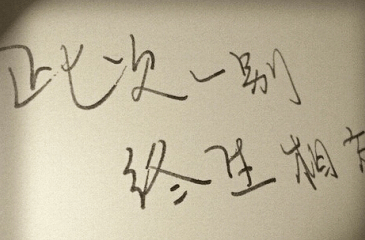 此次一别
终生相